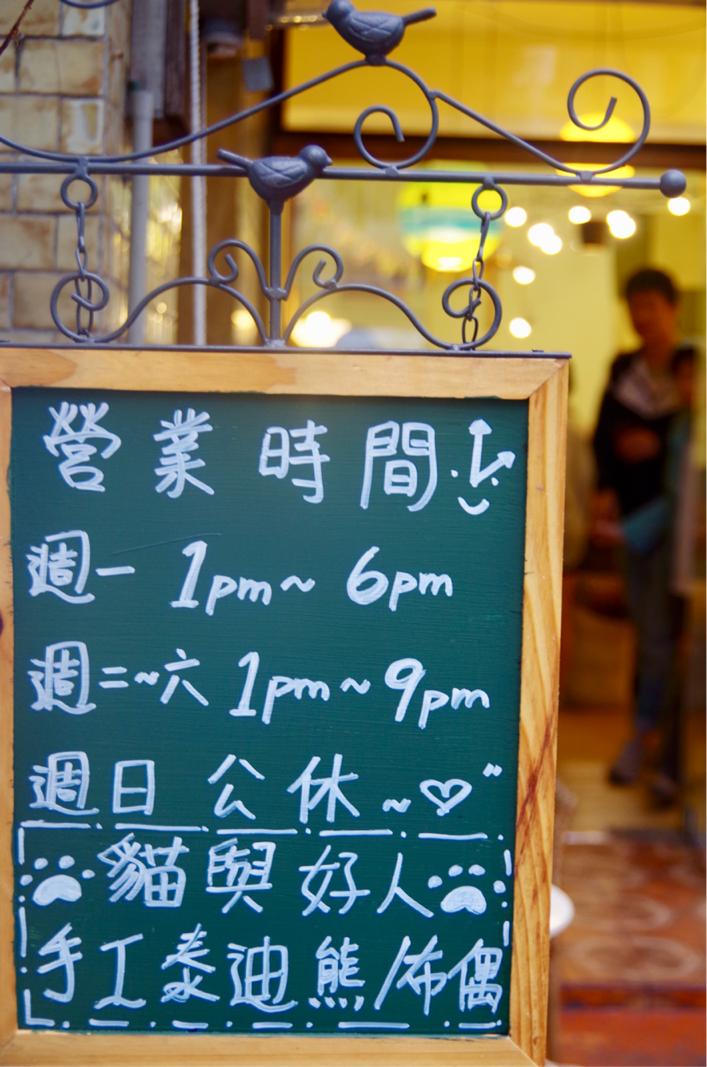 營業時間
週一 1pm~ 6pm
週二~六 1pm~9pm
週日 公休~♡"
貓與好人
手工泰迪熊/佈偶